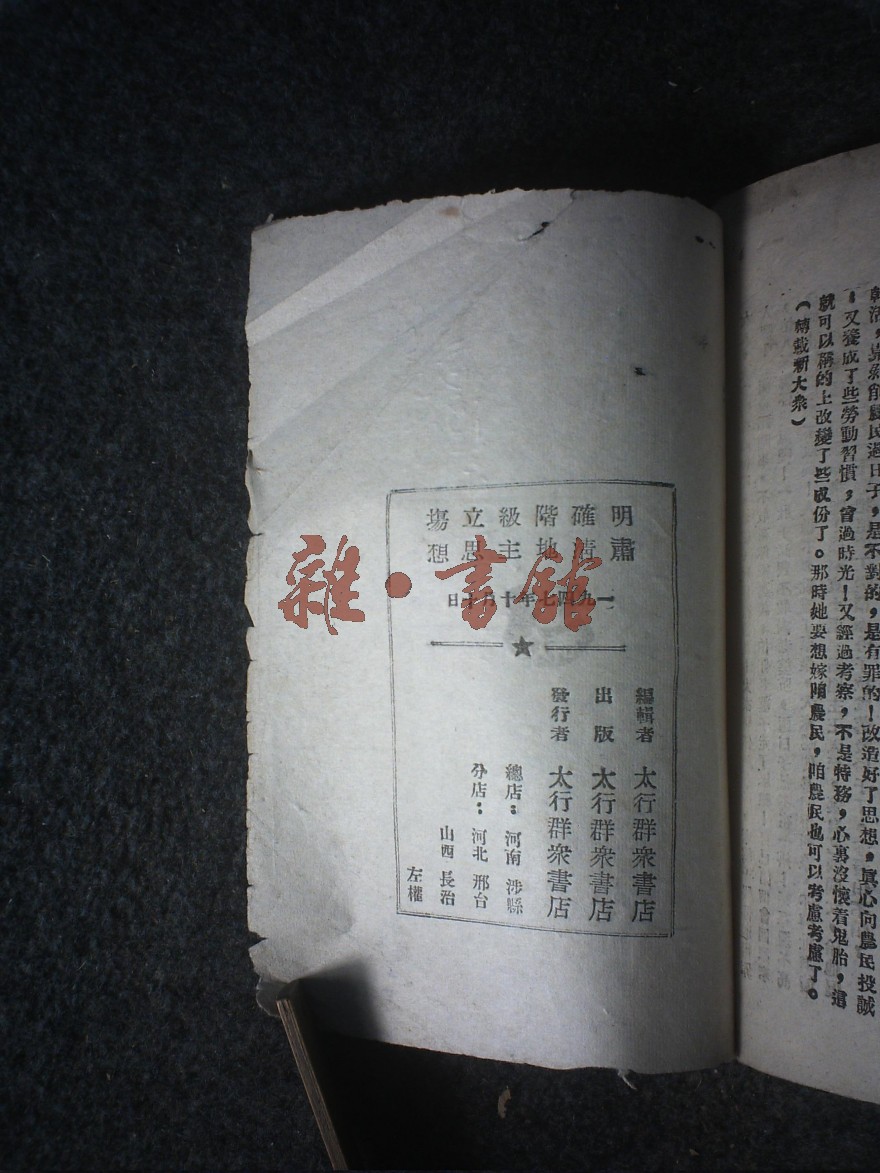 削農民過日子，是不對的，是有罪的！改造好了思想，真心向農民投誠
，又養成了些勞動習慣，會過時光！又經過考察，不是特務，心裏沒懷着鬼胎，這
就可以稱的上改變了些成份了。那時她要想嫁咱農民，咱農民也可以考慮考慮了。
（轉載新大衆）
明確階級立塲
肅清地主思想
一九四七年十月十日
編輯者 太行群衆書店
出版 太行群衆書店
發行者 太行群衆書店
總店：河南 涉縣
分店：河北 邢台
山西 長治
左權
雜·書館